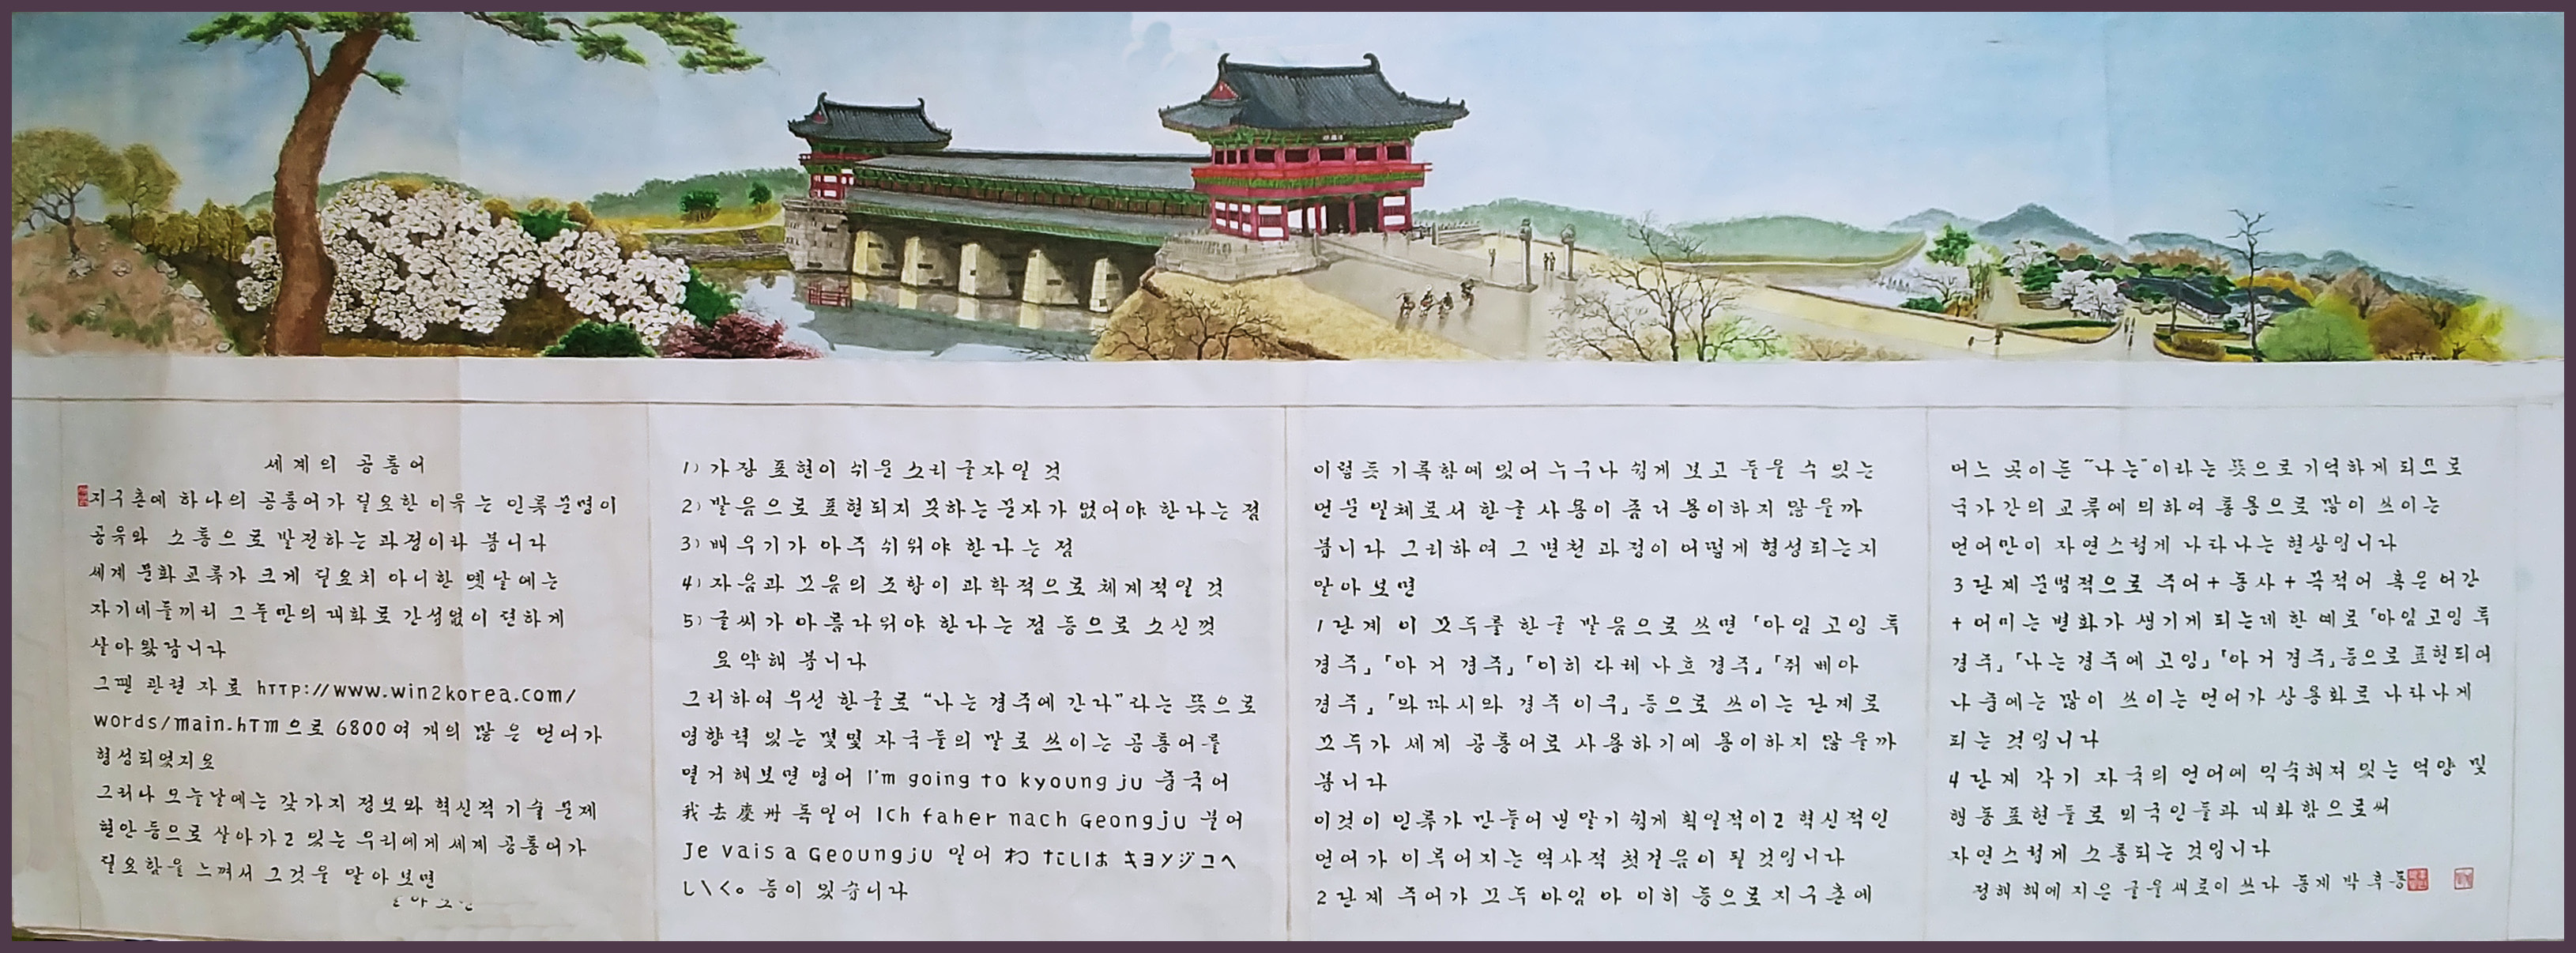 세계의 공통어
지구촌에 하나의 공통어가 필요한 이유는 인류문명이
공유와 소통으로 발전하는 과정이라 봅니다
세계 문화교류가 크게 필요치 아니한 옛날에는
자기네들끼리 그들만의 대화로 간섭없이 편하게
살아왔답니다
그땐 관련 자료 http://www.win2korea.com/
words/main.htm으로 6800여 개의 많은 언어가
형성되었지요
그러나 오늘날에는 갖가지 정보와 혁신적 기술 문제
현안등으로 살아가고 있는 우리에게 세계 공통어가
필요함을 느껴서 그것을 알아보면
1) 가장 표현이 쉬운 소리글자일 것
2) 발음으로 표현되지 못하는 문자가 없어야 한다는 점
3) 배우기가 아주 쉬워야 한다는 점
4) 자음과 모음의 조합이 과학적으로 체계적일 것
5) 글씨가 아름다워야 한다는 점 등으로 소신껏
요약해 봅니다
그리하여 우선 한글로 “나는 경주에 간다”라는 뜻으로
영향력 있는 몇몇 자국들의 말로 쓰이는 공통어를
열거해보면 영어 I'm going to kyoung ju 중국어
我去慶州 독일어 Ich faher nach Geongju 불어
Je vais a Geoungju 일어 わたしは キョンジュへ
い\く。 등이 있습니다
이렇듯 기록함에 있어 누구나 쉽게 보고 들을 수 있는
언문일체로서 한글 사용이 좀더 용이하지 않을까
봅니다 그리하여 그 변천 과정이 어떻게 형성되는지
알아보면
1단계 이 모두를 한글 발음으로 쓰면 「아임고잉 투
경주」「아 거 경주」「이히 다레 나흐 경주」「쥐 베아
경주」「와따시와 경주 이쿠」등으로 쓰이는 단계로
모두가 세계 공통어로 사용하기에 용이하지 않을까
봅니다
이것이 인류가 만들어낸 알기 쉽게 획일적이고 혁신적인
언어가 이루어지는 역사적 첫걸음이 될 것입니다
2단계 주어가 모두 아임 아 이히 등으로 지구촌에
어느 곳이든 “나는”이라는 뜻으로 기억하게 되므로
국가간의 교류에 의하여 통용으로 많이 쓰이는
언어만이 자연스럽게 나타나는 현상입니다
3단계 문법적으로 주어+동사+목적어 혹은 어간
+어미는 변화가 생기게 되는데 한 예로 「아임고잉 투
경주」「나는 경주에 고잉」「아 거 경주」등으로 표현되어
나중에는 많이 쓰이는 언어가 상용화로 나타나게
되는 것입니다
4단계 각기 자국의 언어에 익숙해져 있는 억양 및
행동표현들로 외국인들과 대화함으로써
자연스럽게 소통되는 것입니다
정해 해에 지은 글을 새로이 쓰다 동계 박 후동